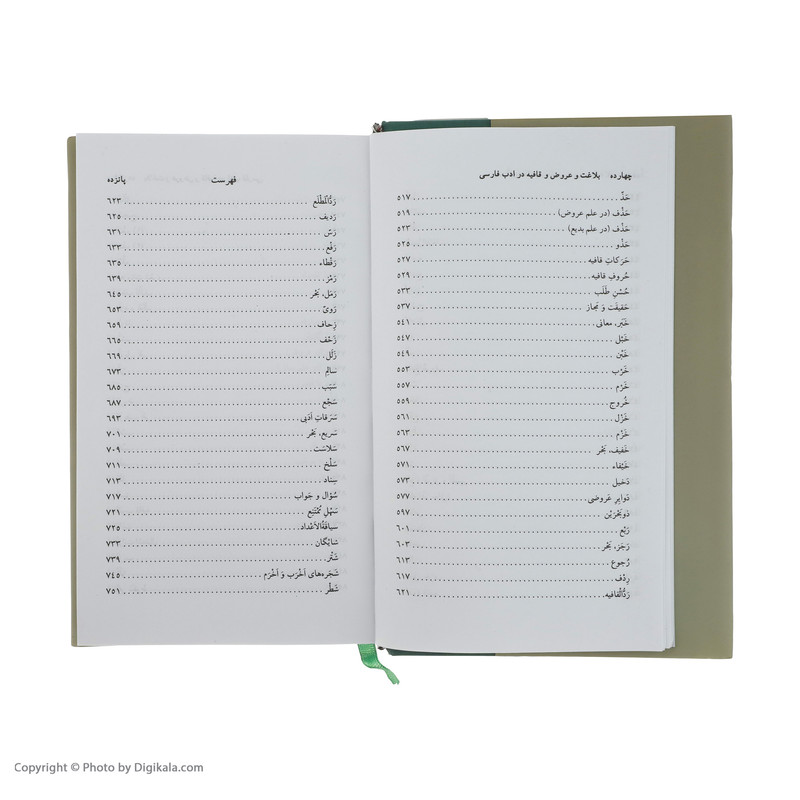 چهارده بلاغت و عروض و قافیه در ادب فارسی
حَذّ ۵۱۷
حَذْف (در علم عروض) ۵۱۹
حَذْف (در علم بدیع) ۵۲۳
حَذْو ۵۲۵
حَرَکاتِ قافیه ۵۲۷
حُروفِ قافیه ۵۲۹
حُسْنِ طَلَب ۵۳۳
حَقیقَت وَ مَجاز ۵۳۷
خَبَر، معانی ۵۴۱
خَبْل ۵۴۷
خَبْن ۵۴۹
خَرْب ۵۵۳
خَرْم ۵۵۷
خُروج ۵۵۹
خَزْل ۵۶۱
خَزْم ۵۶۳
خَفیف، بَحْر ۵۶۷
خَیْفاء ۵۷۱
دَخیل ۵۷۳
دَوایِرِ عَروضی ۵۷۷
ذوبَحْرَیْن ۵۹۷
رَبْع ۶۰۱
رَجَز، بَحْر ۶۰۳
رُجوع ۶۱۳
رِدْف ۶۱۷
رَدُّالْقافیه ۶۲۱
فهرست پانزده
رَدُّالْمَطْلَع ۶۲۳
رَدیف ۶۲۵
رَسّ ۶۳۱
رَفْع ۶۳۳
رَقْطاء ۶۳۵
رَمْز ۶۳۹
رَمَل، بَحْر ۶۴۵
رَویّ ۶۵۳
زِحاف ۶۵۹
زَحْف ۶۶۵
زَلَل ۶۶۹
سالِم ۶۷۳
سَبَب ۶۸۵
سَجْع ۶۸۷
سَرَقاتِ اَدَبی ۶۹۳
سَریع، بَحْر ۷۰۱
سَلاسَت ۷۰۹
سَلْخ ۷۱۱
سِناد ۷۱۳
سُؤال و جَواب ۷۱۷
سَهْلِ مُمْتَنِع ۷۲۱
سیاقَةُالاَعْداد ۷۲۵
شایْگان ۷۳۳
شَتْر ۷۳۹
شَجَره‌های اَخْرَب وَ اَخْرَم ۷۴۵
شَطْر ۷۵۱
Copyright © Photo by Digikala.com